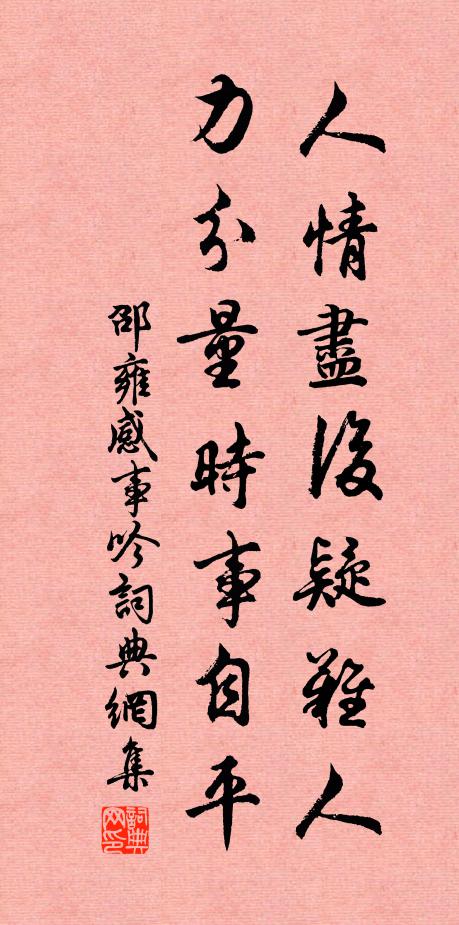 人情盡後疑難人
力分量時事自平
邵雍感事吟詞典網集
詞典
网印